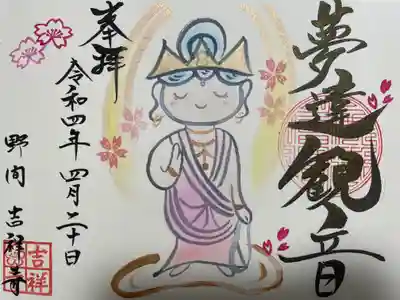 夢違観音
奉拝
令和四年 四月二十日
野間 吉祥寺
吉祥